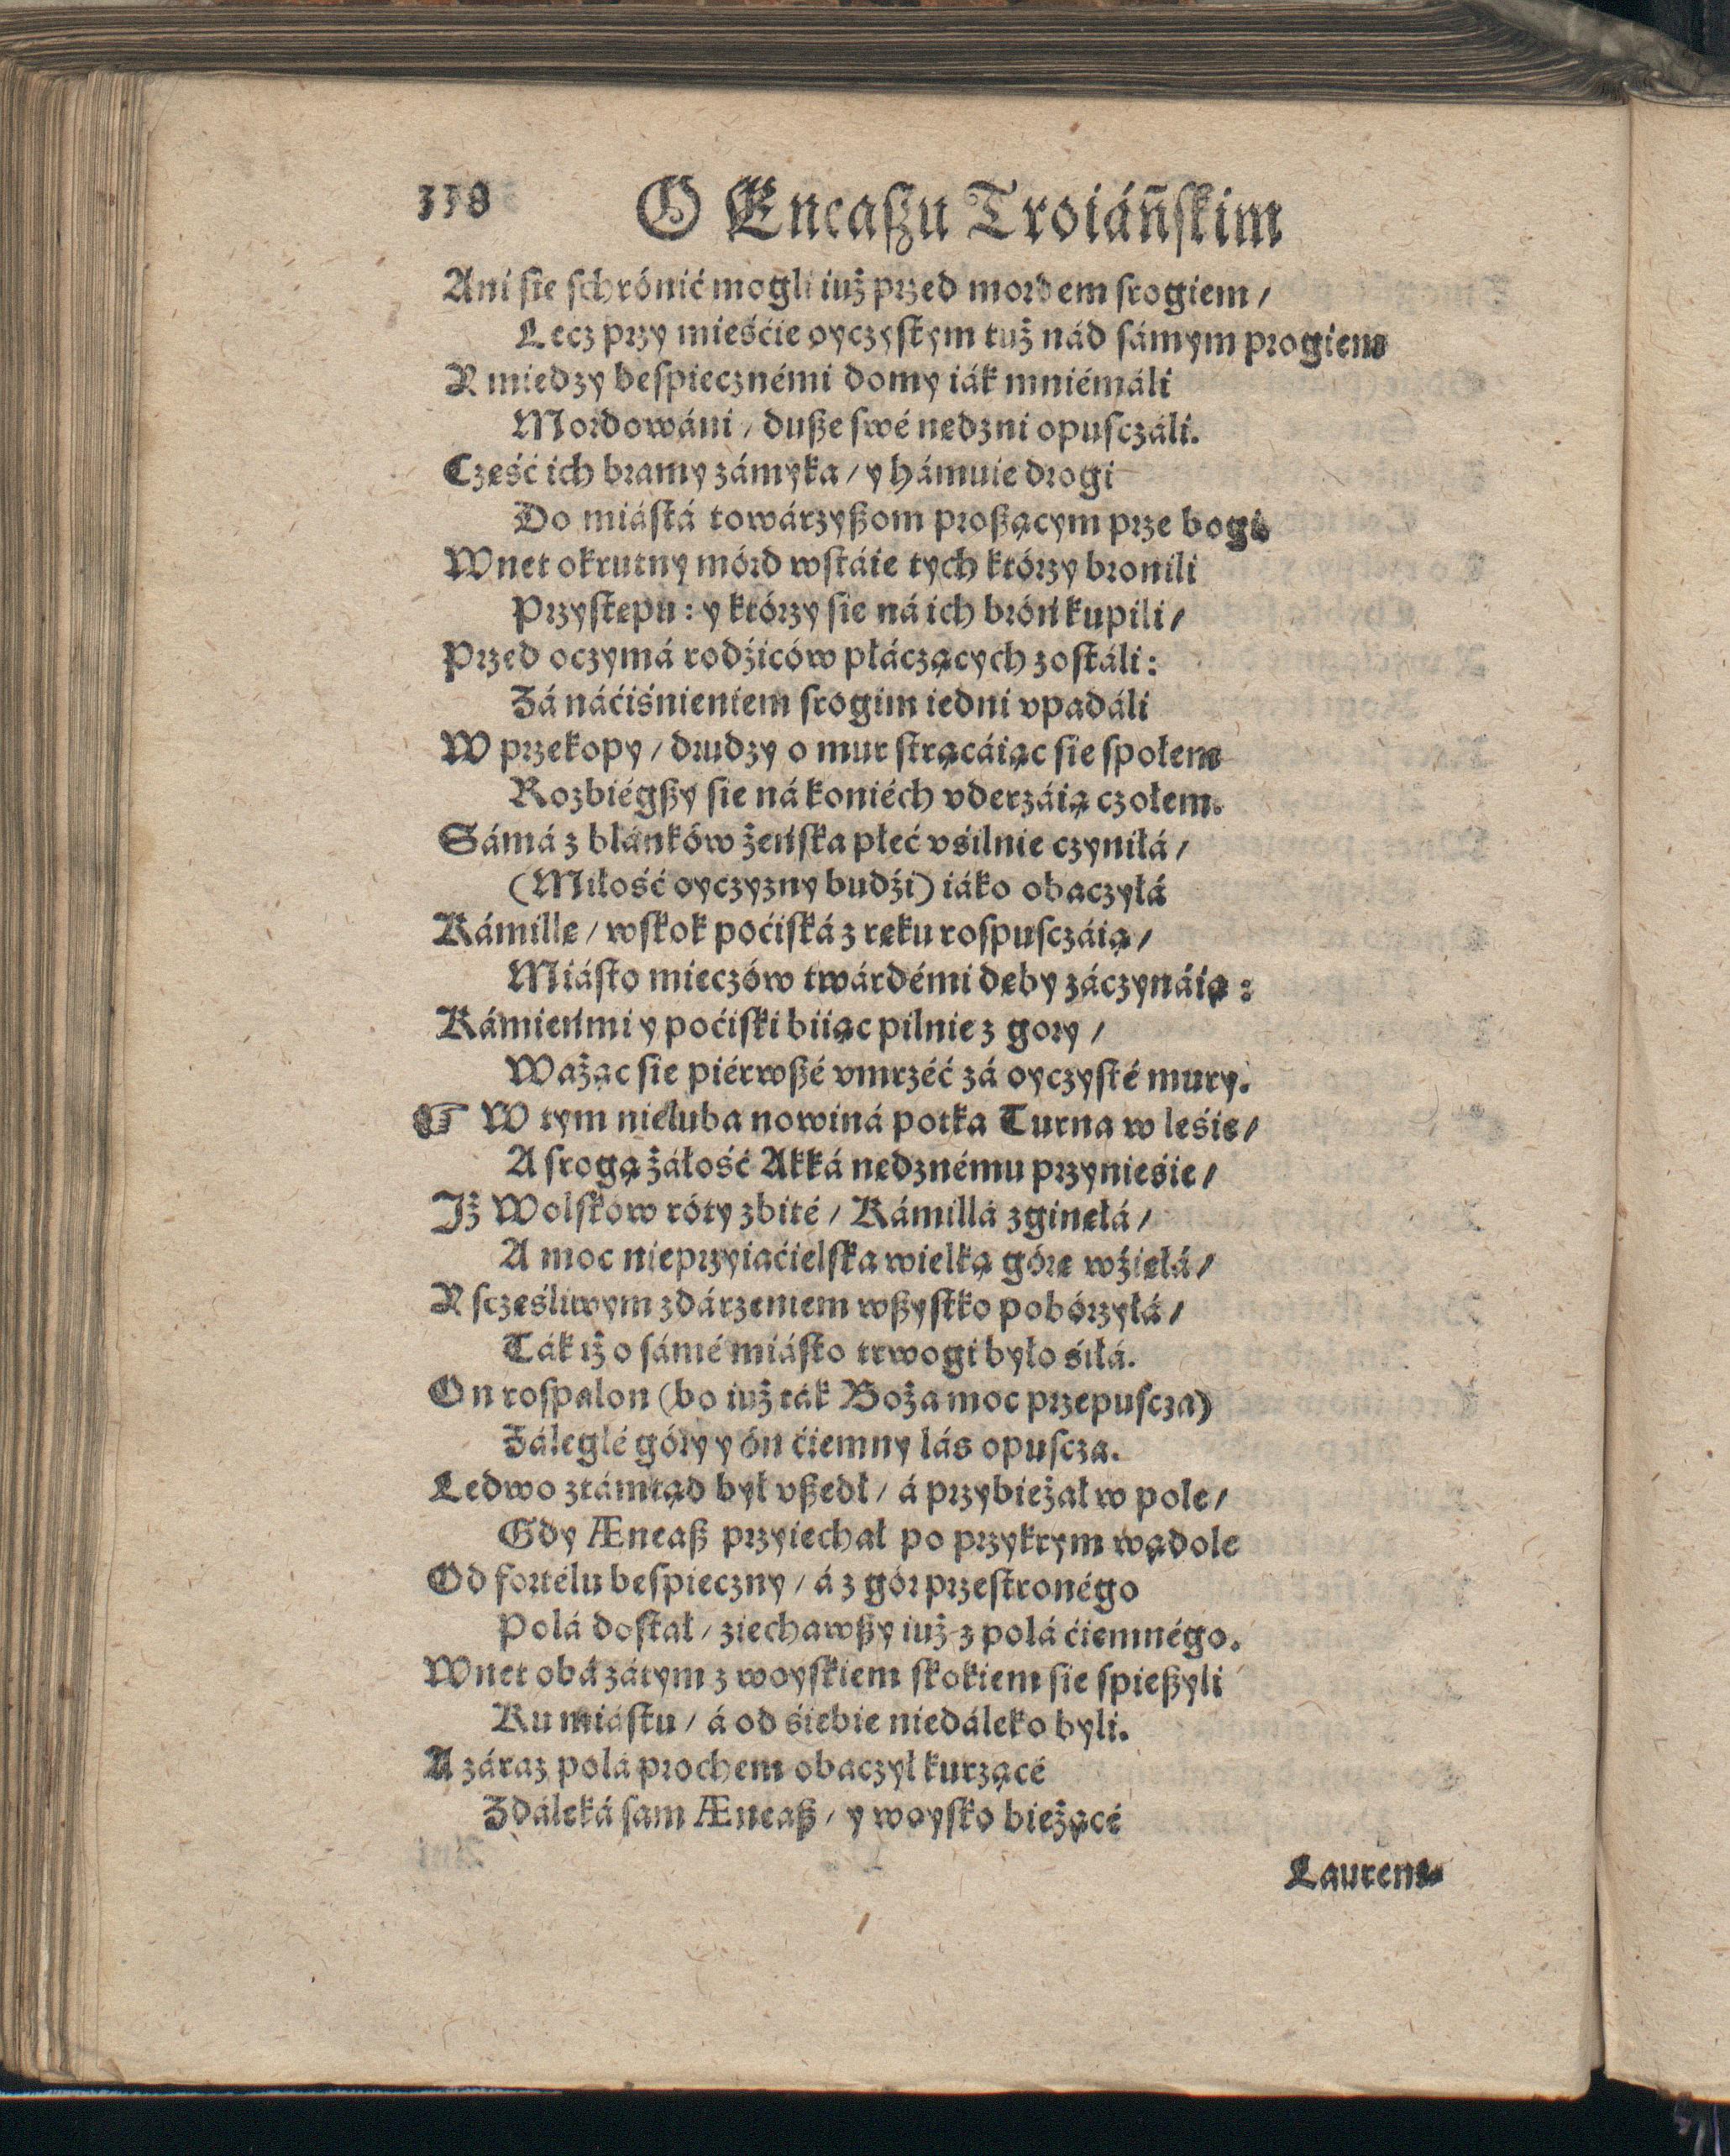 338
O Eneaszu Troiáńskim
Ani sie schrónić mogli iuż przed mordem srogiem /
Lecz przy mieśćie oyczystym tuż nád sámym progiem
Y miedzy bespiecznémi domy iák mniémáli
Mordowáni / dusze swé nędzni opusczáli.
Cześć ich bramy zámyka / y hámuie drogi
Do miástá towárzyszom proszącym prze bogi
Wnet okrutny mórd wstáie tych którzy bronili
Przystępu : y którzy sie ná ich broń kupili /
Przed oczymá rodźiców płáczących zostáli :
Zá náćiśnieniem srogim iedni vpadáli
W przekopy / drudzy o mur strącáiąc sie społem
Rozbiégszy sie ná koniéch vderzáią czołem.
Sámá z blánków żeńska płeć vśilnie czyniłá /
(Miłość oyczyzny budźi) iáko obaczyłá
Kámillę / wskok poćiská z ręku rospusczáią /
Miásto mieczów twárdémi dęby záczynáią :
Kámieńmi y poćiski biiąc pilnie z gory /
Ważąc sie piérwszé vmrzéć zá oyczysté mury.
☞ W tym nieluba nowiná potka Turna w leśie /
A srogą żáłość Akká nędznému przynieśie /
Iż Wolsków róty zbité / Kámillá zginęłá /
A moc nieprzyiaćielska wielką górę wźięłá /
Y sczęśliwym zdárzeniem wszystko pobórzyłá /
Ták iż o sámé miásto trwogi było śiłá.
On rospalon (bo iuż ták Boża moc przepuscza)
Záległé góry y ón ćiemny lás opuscza.
Ledwo ztámtąd był vszedł / á przybieżał w pole /
Gdy Æneasz przyiechał po przykrym wądole
Od fortélu bespieczny / á z gór przestronégo
Polá dostał / ziechawszy iuż z polá ćiemnégo.
Wnet obá zátym z woyskiem skokiem sie spieszyli
Ku miástu / á od śiebie niedáleko byli.
A záraz polá prochem obaczył kurzącé
Zdáleká sam Æneasz / y woysko bieżącé
Laurent-